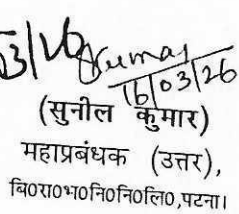 Kumar
16/03/26
(सुनील कुमार)
महाप्रबंधक (उत्तर),
बि०रा०भ०नि०नि०लि०,पटना।